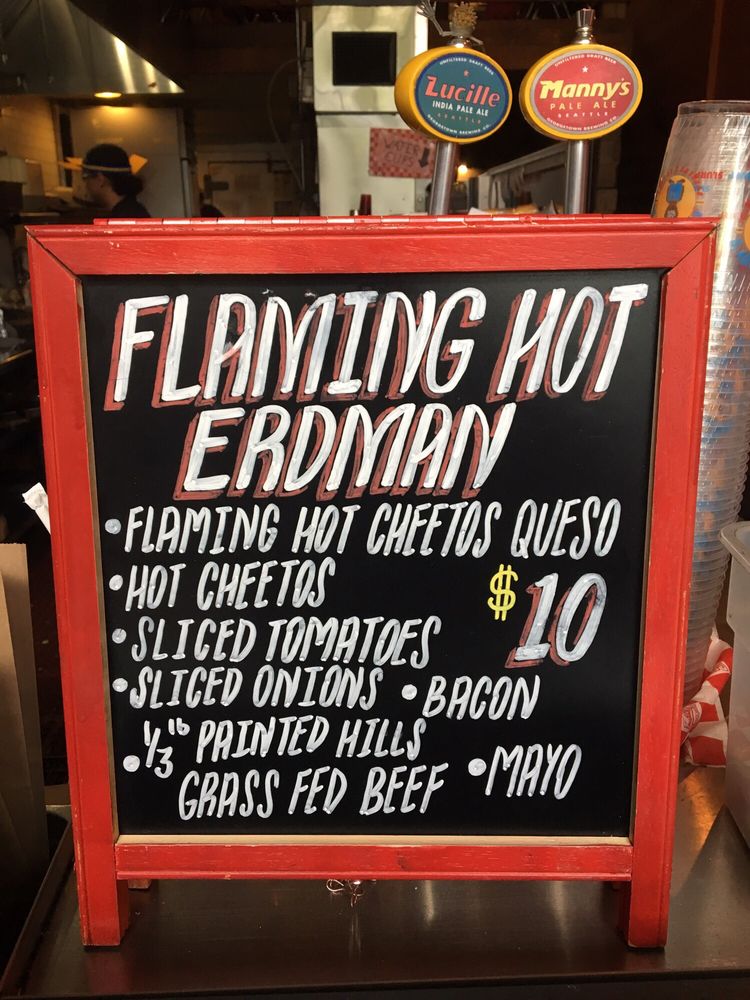 UNFILTERED DRAFT BEER
Lucille
INDIA PALE ALE
SEATTLE
GEORGETOWN BREWING CO.
UNFILTERED DRAFT BEER
Manny's
PALE ALE
SEATTLE
GEORGETOWN BREWING CO.
WATER
CUPS
FLAMING HOT
ERDMAN
•FLAMING HOT CHEETOS QUESO
•HOT CHEETOS
$10
•SLICED TOMATOES
•SLICED ONIONS •BACON
•1/3 lb PAINTED HILLS
GRASS FED BEEF •MAYO